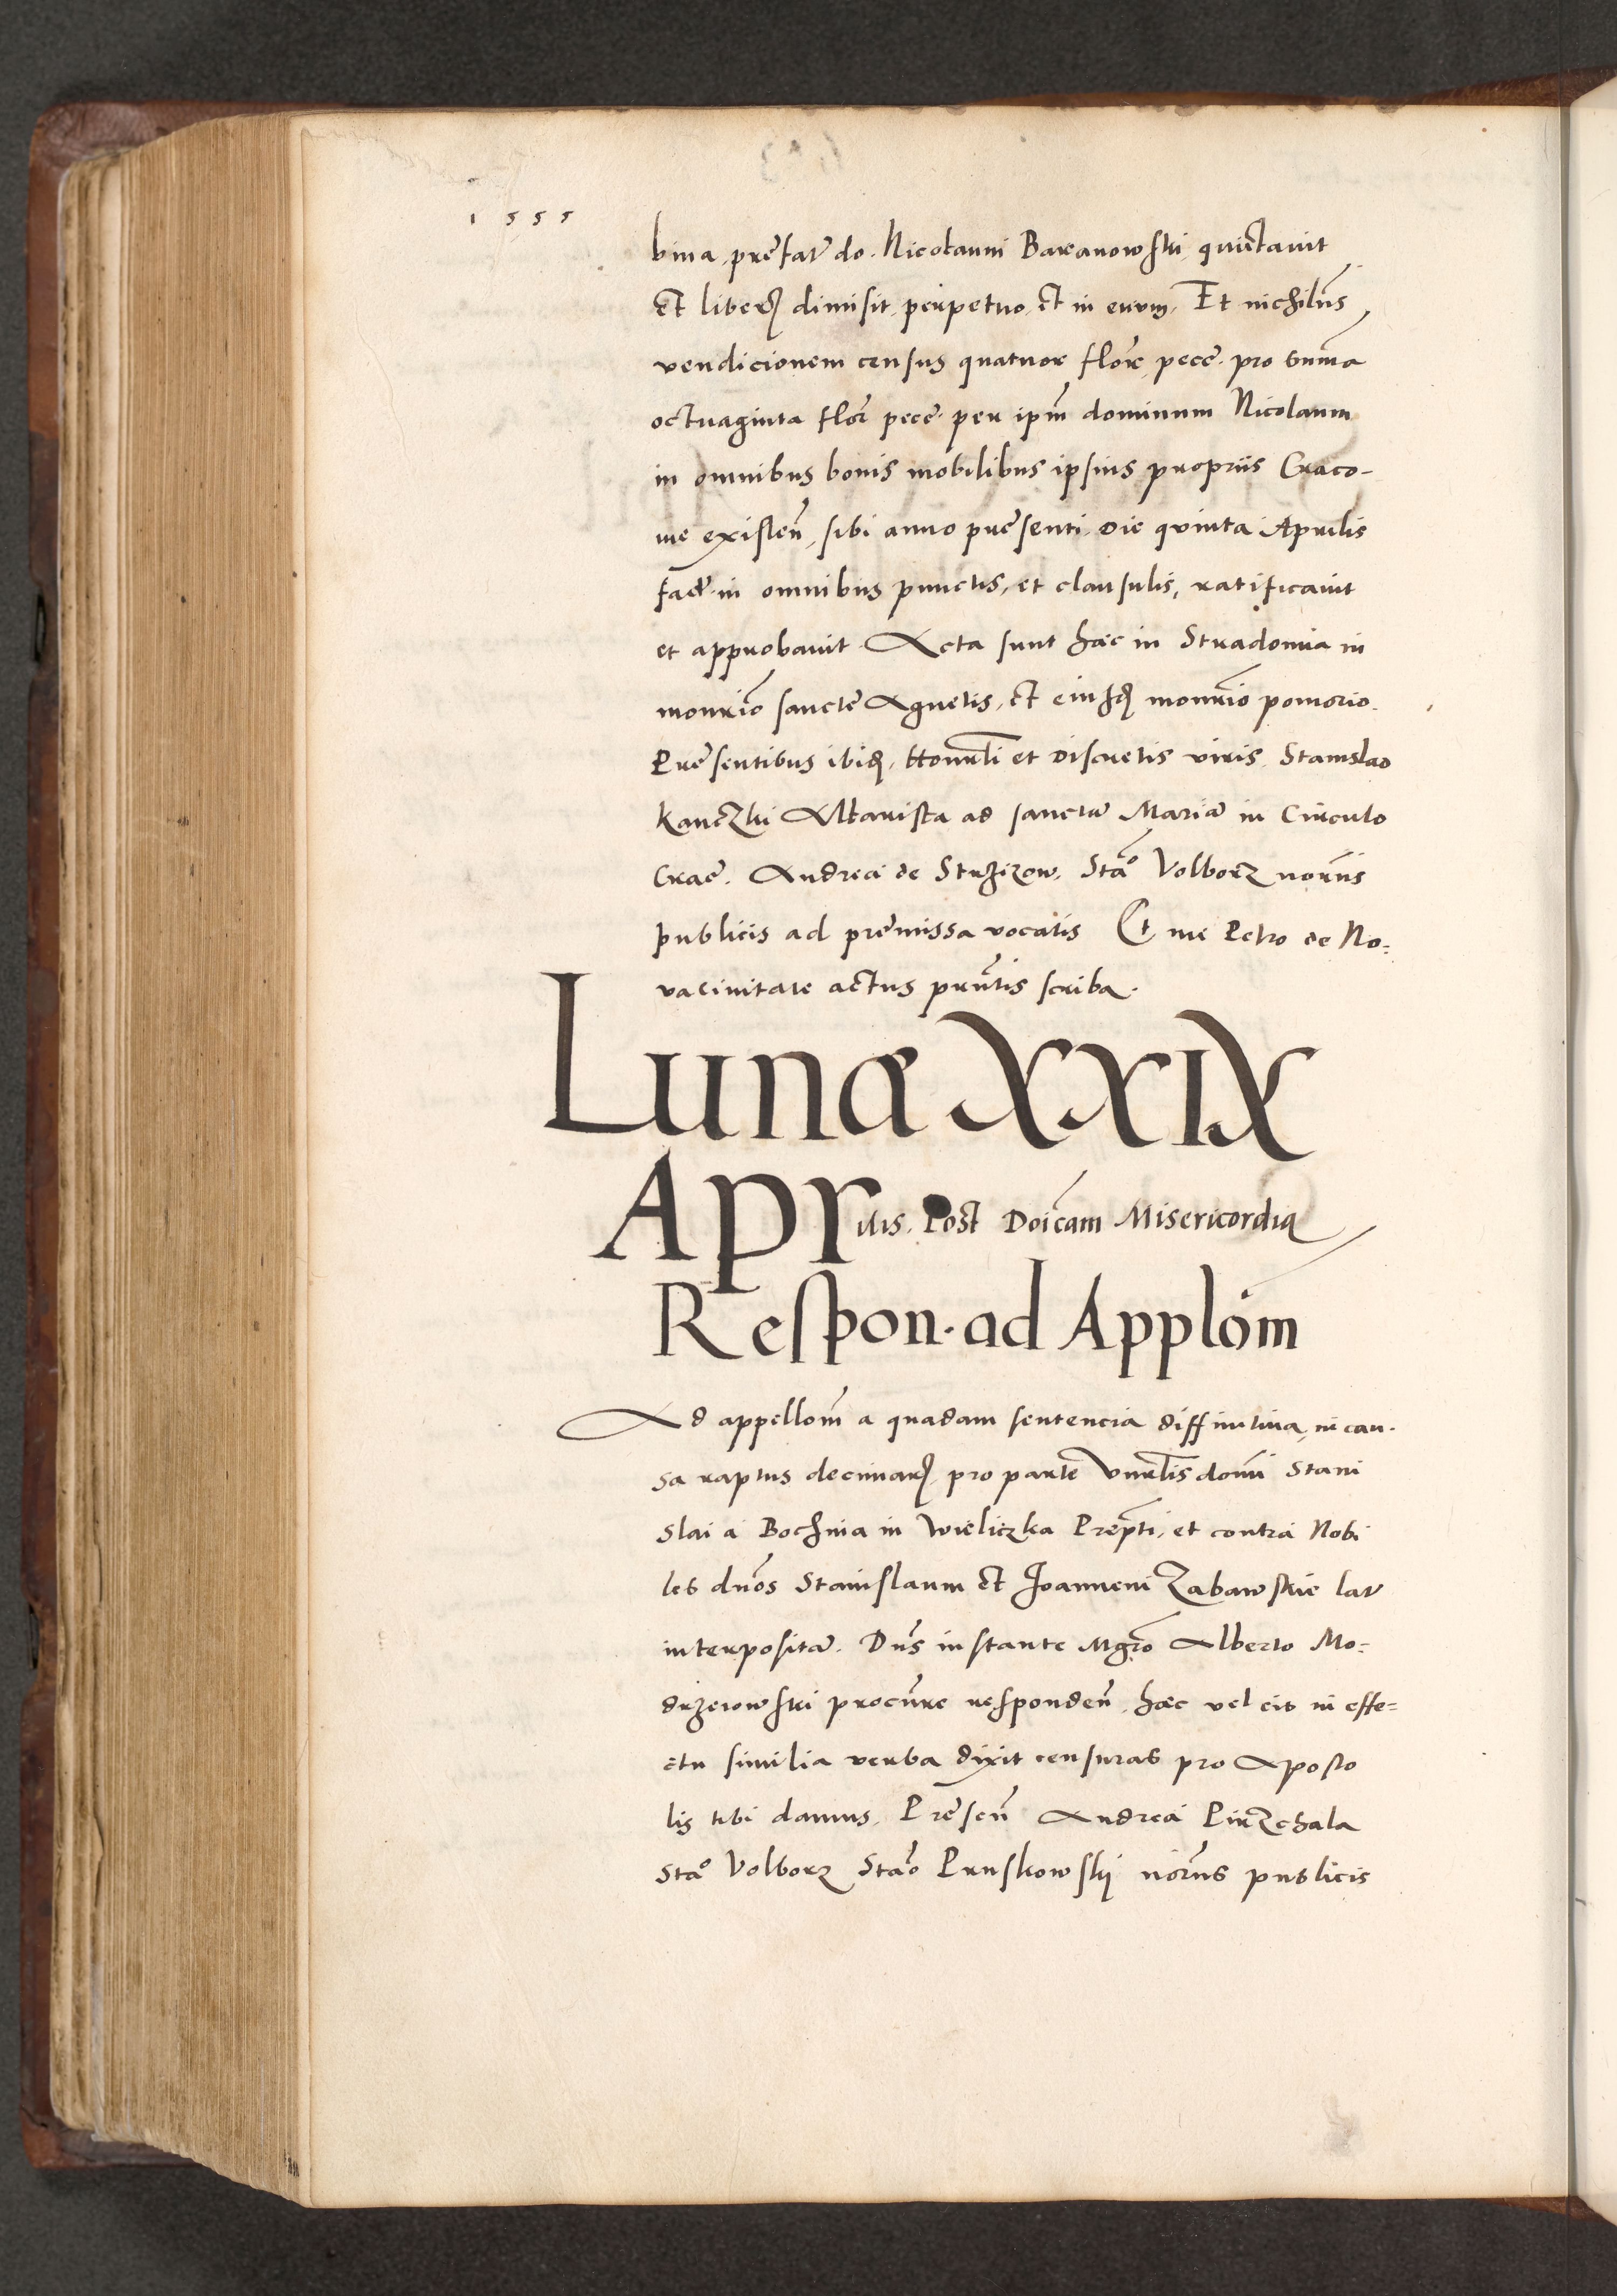 1555
bina, prefat do. Nicolaum Baranowski, quictavit
et liber dimisit, perpetuo, et in evum. Et nichilus
vendicionem census quatuor flor pece. pro summa
octuaginta flor pece. per ipm dominum Nicolaum
in omnibus bonis mobilibus ipsius propriis Craco-
vie existen, sibi anno presenti, die quinta Aprilis
fact. in omnibus punctis, et clausulis, ratificavit
et approbavit. Acta sunt haec in Stradomia in
monrio sancte Agnetis, et eiusd monrio pomorio.
Presentibus ibid, Honrli et discretis viris, Stanislao
Kanczki Altarista ad sanctam Mariam in Circulo
Crac. Andrea de Strzizow, Stao Volborz noriis
publicis ad premissa vocatis Et me Petro de No=
vacivitate actus prntis scriba.
Lunae XXIX
Aprilis. Post Doicam Misericordia
Respon. ad Applom
Ad appellom a quadam sentencia diffinitiva, in cau-
sa raptus decimar, pro parte Vnrlis domi Stani
slai a Bochnia in Wieliczka Prepti, et contra Nobi
les dnos Stanislaum et Joannem Zabawskie lat
interposita. Dns instante Mgro Alberto Mo=
drzeiowski procure responden, haec vel eis in effe=
ctu similia verba dixit censuras pro Aposto
lis tibi damus. Presen Andrea Pirzchala
Stao Volborz Stao Pruskowskj noriis publicis